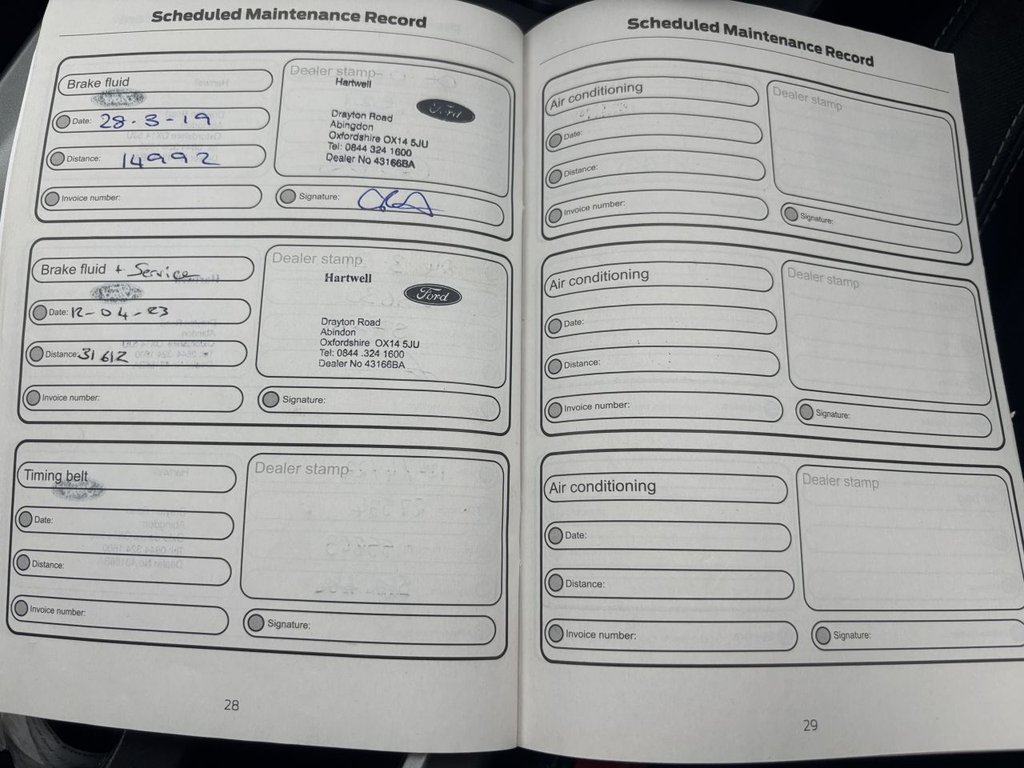 Scheduled Maintenance Record
Brake fluid
Date: 28-3-19
Distance: 14992
Invoice number:
Dealer stamp
Hartwell
Ford
Drayton Road
Abingdon
Oxfordshire OX14 5JU
Tel: 0844 324 1600
Dealer No 43166BA
Signature:
Brake fluid + Service
Date: 12-04-23
Distance: 31612
Invoice number:
Dealer stamp
Hartwell
Ford
Drayton Road
Abindon
Oxfordshire OX14 5JU
Tel: 0844 .324 1600
Dealer No 43166BA
Signature:
Timing belt
Date:
Distance:
Invoice number:
Dealer stamp
Signature:
28
Scheduled Maintenance Record
Air conditioning
Date:
Distance:
Invoice number:
Dealer stamp
Signature:
Air conditioning
Date:
Distance:
Invoice number:
Dealer stamp
Signature:
Air conditioning
Date:
Distance:
Invoice number:
Dealer stamp
Signature:
29